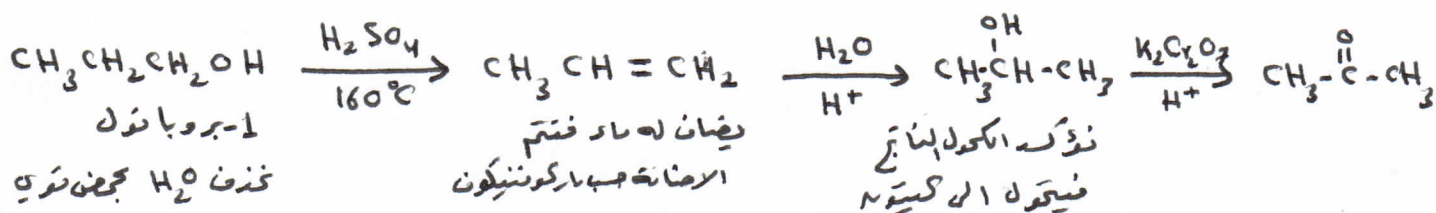 CH₃CH₂CH₂OH —H₂SO₄ / 160°C→ CH₃CH=CH₂ —H₂O / H⁺→ CH₃-CH(OH)-CH₃ —K₂Cr₂O₇ / H⁺→ CH₃-C(=O)-CH₃
1-بروبانول
نحذف H₂O بحمض قوي
يضاف له ماء فتتم
الاضافة حسب ماركوفنيكون
نؤكسد الكحول الناتج
فيتحول الى كيتون